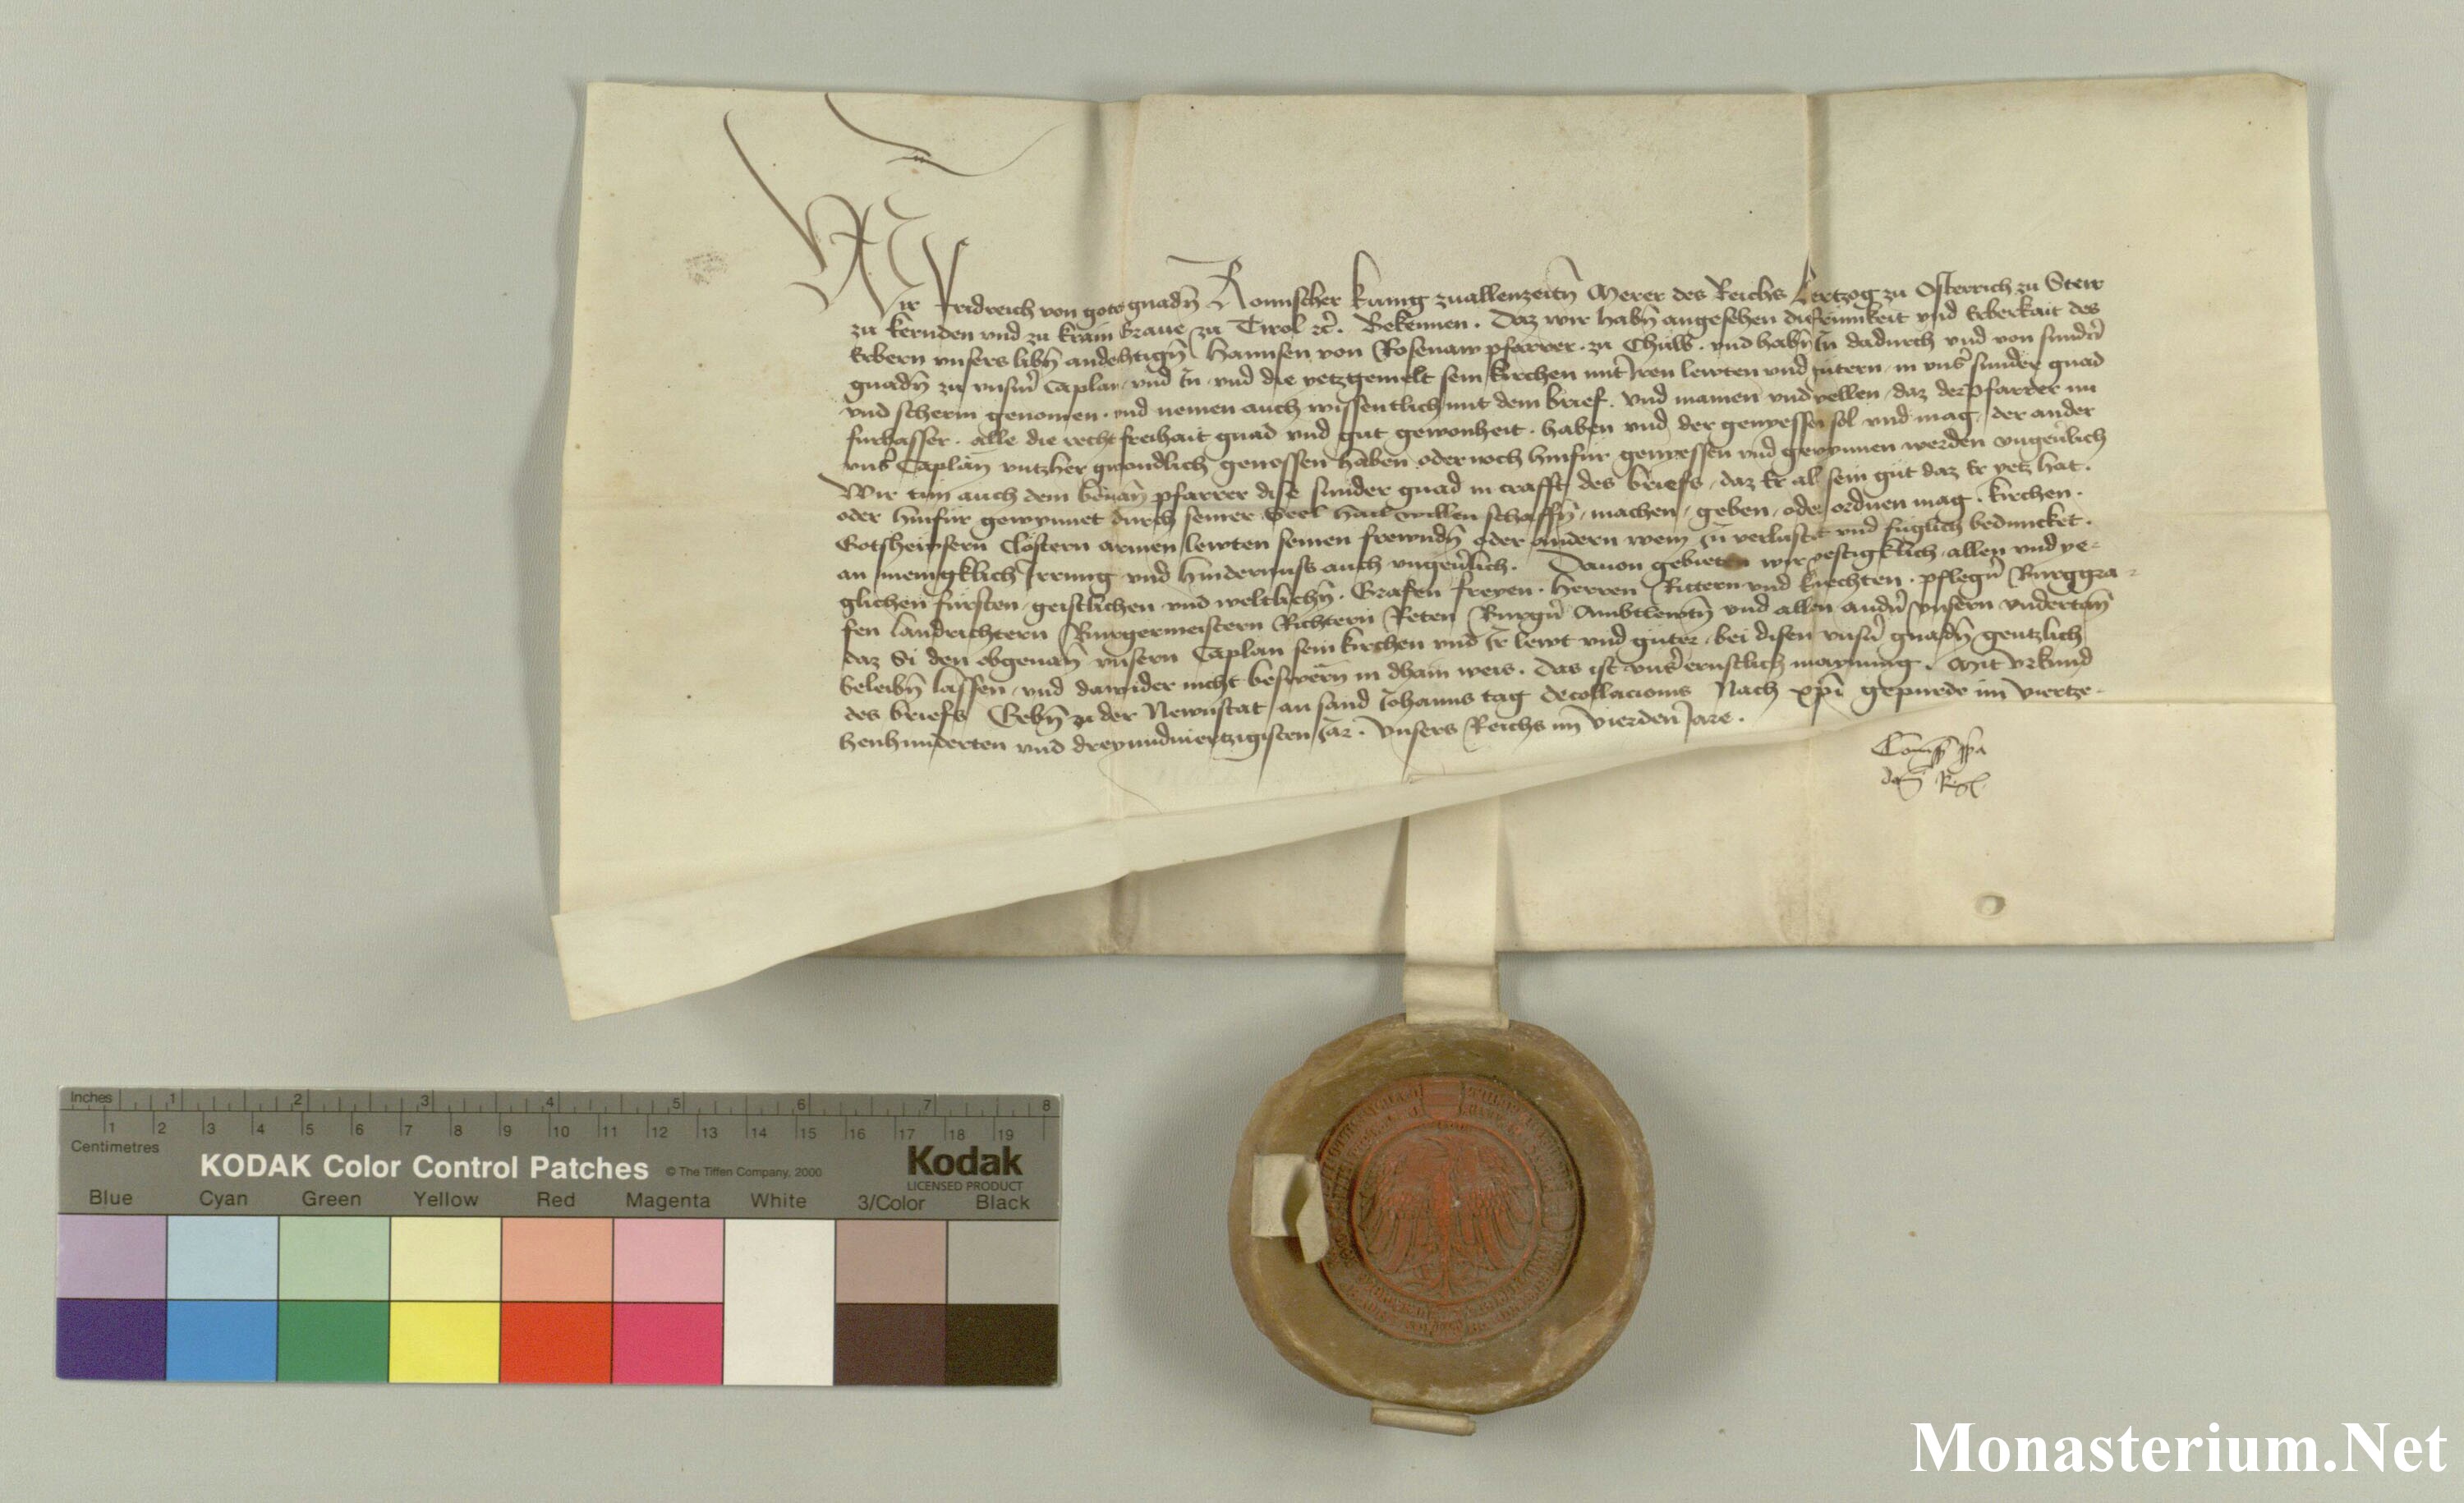 Wir Fridreich von gots gnadn̄ Romischer kunig zuallenzeitn̄ Merer des Reichs Hertzog zu Osterrich zu Steir
zu kernden vnd zu krain Graue zu Tirol ꝛc̄. Bekennen. Daz wir habn̄ angesehen die frumkeit vnd Erberkait des
Erbern vnsers libn̄ andehtign̄ Hannsen von Rosenaw pfarrer. zu Chulb. vnd habn̄ In dadurch vnd von sundern̄
gnadn̄ zu vnserm̄ Caplan vnd In vnd die yetzgemelt sein kirchen mit Iren lewten vnd gütern in vnsr̄ sunder gnad
vnd scherm genomen. vnd nemen auch wissentlich mit dem brief. vnd mainen vnd wellen, daz der Pfarrer nu
furbasser. alle die recht freihait gnad vnd gut gewonheit. haben vnd der geniessen sol vnd mag. der ander
vnsr̄ Caplän vntzher gewondlich genossen haben oder noch hinfür geniessen vnd gewynnen werden vngeuerlich
Wir tun auch dem benan̄ pfarrer dise sunder gnad in crafft des briefs, daz Er al sein gut daz Er yetz hat.
oder hinfür gewynnet durch seiner Seel hail willen schaffn̄, machen, geben, oder ordnen mag. kirchen.
Gotshewsern Clöstern armen lewten seinen frewndn̄ oder andern wem In verlustet vnd füglich beduncket.
an menigklich Irrung vnd hindernuss auch vngeuerlich. Dauon gebieten wir vestigklich, allen vnd ye-
glichen fürsten, geistlichen vnd weltlichn̄. Grafen freyen. Herren Rittern vnd knechten. pflegern̄ Burggra-
fen landrichtern Burgermeistern Richtern Reten Burgern̄ Ambtlewtn̄ vnd allen andern̄ vnsern vndertan̄
daz Si den obgenan̄ vnsern Caplan sein kirchen vnd Ir lewt vnd güter. bei disen vnsern̄ gnadn̄ gentzlich
beleibn̄ lassen, vnd dawider nicht beswern̄ in dhain weis. Das ist vnsr̄ ernstlich maynung. Mit vrkund
des briefs Gebn̄ zu der Newnstat an sand Johanns tag decollacionis Nach xp̄i gepurde im viertze-
henhunderten vnd dreyundviertzigisten Jar. Vnsers Reichs im vierden Jare.
Inches 1 2 3 4 5 6 7 8
1 2 3 4 5 6 7 8 9 10 11 12 13 14 15 16 17 18 19
Centimetres
KODAK Color Control Patches © The Tiffen Company, 2000 Kodak
LICENSED PRODUCT
Blue Cyan Green Yellow Red Magenta White 3/Color Black
Monasterium.Net